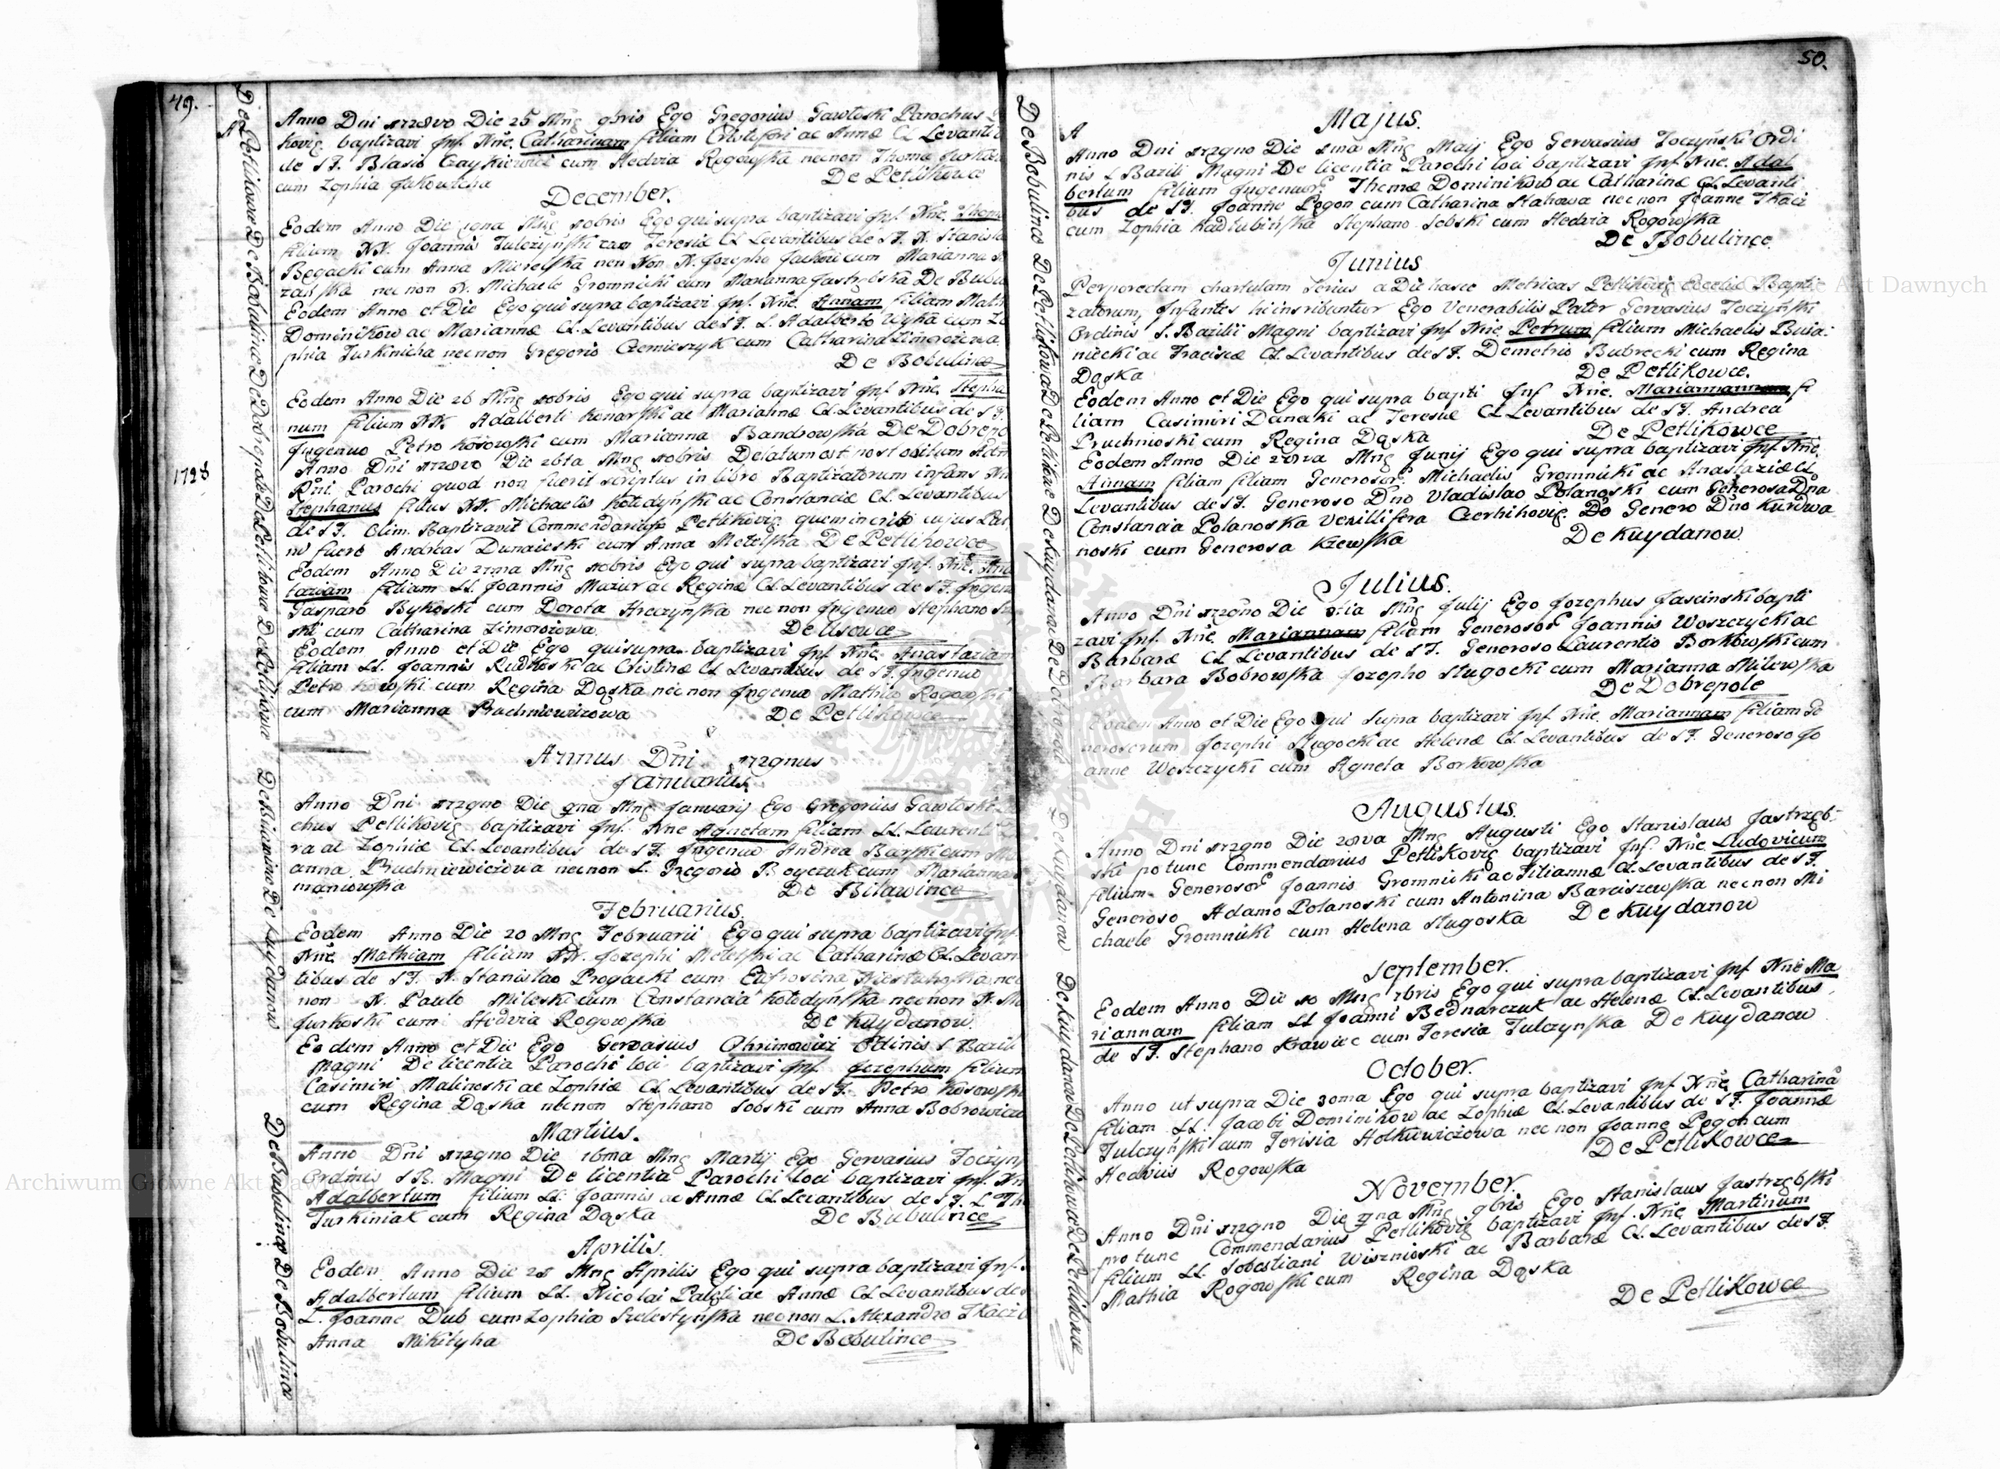 49.
De Petlikowce De Bobulince De Dobropole De Petlikowce De Petlikowce De Bilawince De Kuydanow De Bubulince De Bobulince
A
1728
Anno Dni 1728vo Die 25 Mng 9bris Ego Gregorius Gawłoski Parochus
kovig baptizavi Inf. Nne. Catharinam filiam Christiferi ac Annæ Cl Levanti
de S.F. Blasio Czaykiewicz cum Hedvia Rogowska necnon Thoma Jurkie
cum Zophia Jakowicha De Petlikowce
December.
Eodem Anno Die 19na Mng 10bris Ego qui supra baptizavi Inf. Nne. Thom
filium NN. Joannis Tulczyński ac Teresiæ Cl Levantibus de S.F. N. Stanisla
Bogacki cum Anna Mierelska nec Non N. Jozepho Jackovi cum Marianna
zańska nec non N. Michaele Gromnicki cum Marianna Jastrzębska De Bubu
Eodem Anno et Die Ego qui supra baptizavi Inf. Nne. Annam filiam Math
Dominikow ac Mariannæ Cl. Levantibus de S.F. L. Adalberto Wyka cum Zo
phia Turkinicha necnon Gregorio Czemieszyk cum Catharina Zimorozowa
De Bobulince
Eodem Anno Die 26 Mng 10bris Ego qui supra baptizavi Inf Nne. Stepha
num filium NN. Adalberti Konarski ac Mariannæ Cl. Levantibus de S.F.
Ingenuo Petro Kosowski cum Marianna Bandrowska De Dobropo
Anno Dni 1728vo Die 26ta Mng 10bris Delatum est post obitum Adm
Rńi. Parochi quod non fuerit scriptus in libro Baptizatorum infans Nne
Stephanus filius NN. Michaelis Kołodyński ac Constanciæ Cl. Levantibus
de S.F. Olim. Baptizavit Commendarius Petlikovig quem inscribo cujus Pat
ni fuere Andreas Dunaieski cum Anna Metelska De Petlikowce
Eodem Anno Die 27ma Mng 10bris Ego qui supra baptizavi Inf. Nne. Anas
taziam filiam LL. Joannis Mazur ac Reginæ Cl. Levantibus de S.F. Ingen
Gasparo Bykoski cum Dorota Hreczyńska nec non Ingenuo Stephano So
ski cum Catharina Zimorozowa. De Usowce
Eodem Anno et Die Ego qui supra baptizavi Inf Nne. Anastaziam
filiam LL. Joannis Rudkoski ac Cristinæ Cl Levantibus de S.F. Ingenuo
Petro Kosowski cum Regina Dąska nec non Ingenuo Mathia Rogowski
cum Marianna Pruchniewiczowa De Petlikowce
Annus Dni 1729nus
Januarius
Anno Dni 1729no Die 9na Mng Januarij Ego Gregorius Gawłoski
chus Petlikovig baptizavi Inf. Nne Agnetam filiam LL. Laurenti
ra ac Zophiæ Cl. Levantibus de S.F. Ingenuo Andrea Barski cum Ma
anna Pruchniewiczowa necnon L. Gregorio Boyczuk cum Marianna
manowska De Bilawince
Februarius.
Eodem Anno Die 20 Mng Februarii Ego qui supra baptizavi Inf
Nne. Mathiam filium NN. Jozephi Metelski ac Catharinæ Cl. Levan
tibus de S.F. N. Stanislao Progacki cum Eufrosina nec
non N. Paulo Mileski cum Constancia Kołodyńska nec non N. Mi
Jurkoski cum Hedvia Rogowska De Kuydanow.
Eodem Anno et Die Ego Gervasius Ohrimowicz Ordinis S Bazili
Magni De licentia Parochi loci baptizavi Inf Jozephum filium
Casimiri Malinoski ac Zophiæ Cl Levantibus de S.F. Petro Kosowski
cum Regina Dąska nec non Stephano Sobski cum Anna Bobrowicza
Martius.
Anno Dni 1729no Die 16ma Mng Martij Ego Gervasius Toczyń
Ordinis S B. Magni De licentia Parochi loci baptizavi Inf. Nne
Adalbertum filium LL. Joannis ac Annæ Cl Levantibus de S.F. L. Th
Turkiniak cum Regina Dąska De Bubulince
Aprilis.
Eodem Anno Die 28 Mng Aprilis Ego qui supra baptizavi Inf.
Adalbertum filium LL. Nicolai Paleli ac Annæ Cl Levantibus de
L. Joanne Dub cum Zophia Szelestyńska nec non L. Alexandro Tkacz
Anna Mikityha De Bobulince
50.
De Bobulince De Petlikowce De Petlikowce De Kuydanow De Dobropole De Kuydanow De Kuydanow De Petlikowce De Petlikowce
A
Majus.
Anno Dni 1729no Die 1ma Mng Maij Ego Gervasius Toczyński Ordi
nis S Bazili Magni De licentia Parochi loci baptizavi Inf Nne. Adal
bertum filium Ingenuor Thomæ Dominikow ac Catharinæ Cl. Levanti
bus de S.F. Joanne Pogon cum Catharina Stahowa necnon Joanne Tkacz
cum Zophia Kadłubińska Stephano Sobski cum Hedvia Rogowska
De Bobulince.
Junius
Perporectam chartulam serius adidi hasce Metricas Petlikovig Ecclæ Bapti
zatorum, Infantes hic inscribuntur Ego Venerabilis Pater Gervasius Toczyński
Ordinis S. Bazilii Magni baptizavi Inf Nne Petrum filium Michaelis Busia
niecki ac Fraciscæ Cl. Levantibus de S.F. Demetrio Bubrecki cum Regina
Dąska De Petlikowce.
Eodem Anno et Die Ego qui supra bapti Inf Nne. Mariannam fi
liam Casimiri Danacki ac Teresiæ Cl Levantibus de S.F. Andrea
Pruchnioski cum Regina Dąska De Petlikowce
Eodem Anno Die 28va Mng Junij Ego qui supra baptizavi Inf Nne.
Annam filiam filiam Generosor Michaelis Gromnicki ac Anastaziæ Cl
Levantibus de S.F. Generoso Dno Vladislao Polanoski cum Generosa Dna
Constancia Polanoska Vexillifera Czerhihovig. Do Genero Dno Kurdwa
noski cum Generosa Kzewska De Kuydanow.
Julius.
Anno Dni 1729no Die 3tia Mng Julij Ego Jozephus Jascinski bapti
zavi Inf. Nne Mariannam filiam Generosor Joannis Woszczycki ac
Barbaræ Cl Levantibus de S.F. Generoso Laurentio Borkowski cum
Barbara Bobrowska Jozepho Sługocki cum Marianna Milewska
De Dobrepole
Eodem Anno et Die Ego qui supra baptizavi Inf Nne. Mariannam filiam Ge
nerosorum Jozephi Sługocki ac Helenæ Cl. Levantibus de S.F. Generoso Jo
anne Woszczycki cum Agneta Borkowska
Augustus.
Anno Dni 1729no Die 28va Mng Augusti Ego Stanislaus Jastrzęb
ski po tunc Commendarius Petlikovig baptizavi Inf. Nne Ludovicum
filium Generosor Joannis Gromnicki ac Juliannæ Cl. Levantibus de S.F.
Generoso Adamo Polanoski cum Antonina Barciszewska nec non Mi
chaele Gromnicki cum Helena Sługoska De Kuydanow
September.
Eodem Anno Die 10 Mng 7bris Ego qui supra baptizavi Inf Nne Ma
riannam filiam LL Joanni Bednarczuk ac Helenæ Cl. Levantibus
de S.F. Stephano Krawiec cum Teresia Tulczyńska De Kuydanow
October.
Anno ut supra Die 30ma Ego qui supra baptizavi Inf. Nne Catharinã
filiam LL. Jacobi Dominikow ac Zophiæ Cl. Levantibus de S.F. Joannæ
Tulczyński cum Terisia Holkuwiczowa nec non Joanne Pogon cum
Hedvius Rogowska De Petlikowce
November.
Anno Dni 1729no Die 9na Mng 9bris Ego Stanislaus Jastrzębski
pro tunc Commendarius Petlikovig baptizavi Inf. Nne Martinum
filium LL. Sobestiani Wisznioski ac Barbaræ Cl. Levantibus de S.F.
Mathia Rogowski cum Regina Dąska
De Petlikowce
Archiwum Główne Akt Dawnych
Archiwum Główne Akt Dawnych